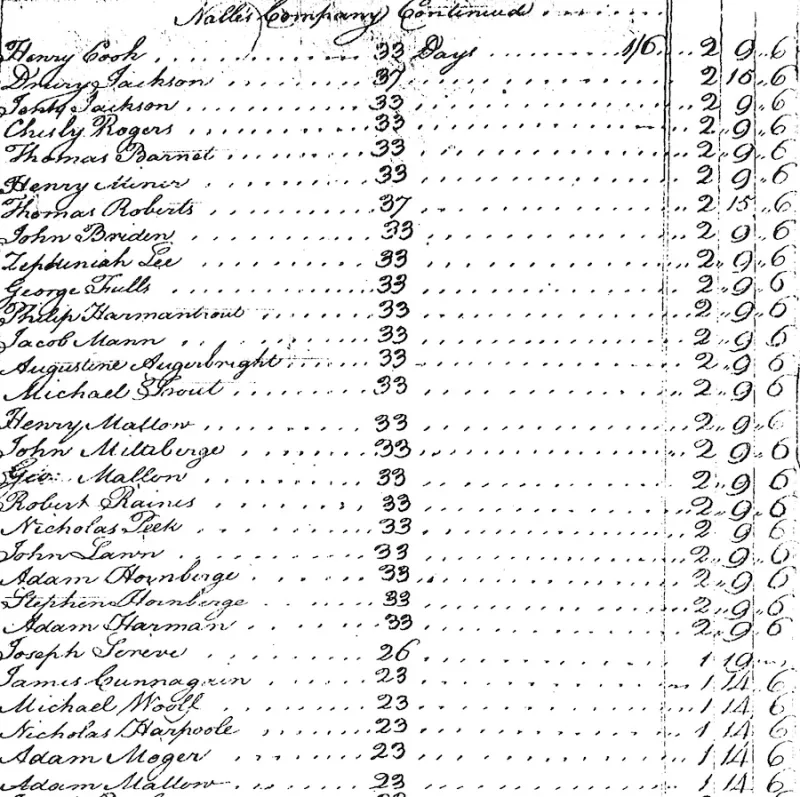 Nalle's Company Continued
Henry Cook 33 Days 1/6 2 9 6
Drury Jackson 37 2 15 6
John Jackson 33 2 9 6
Chesly Rogers 33 2 9 6
Thomas Barnet 33 2 9 6
Henry Miner 33 2 9 6
Thomas Roberts 37 2 15 6
John Briden 33 2 9 6
Zepheniah Lee 33 2 9 6
George Fulls 33 2 9 6
Philip Harmantrout 33 2 9 6
Jacob Mann 33 2 9 6
Augustine Augerbright 33 2 9 6
Michael Trout 33 2 9 6
Henry Mallow 33 2 9 6
John Miltaberge 33 2 9 6
Geo: Mallow 33 2 9 6
Robert Raines 33 2 9 6
Nicholas Peek 33 2 9 6
John Lawn 33 2 9 6
Adam Hornberge 33 2 9 6
Stephen Hornberge 33 2 9 6
Adam Harman 33 2 9 6
Joseph 26 1 19
James Cunnagren 23 1 14 6
Michael Woolf 23 1 14 6
Nicholas Harpoole 23 1 14 6
Adam Moger 23 1 14 6
Adam Mallow 23 1 14 6